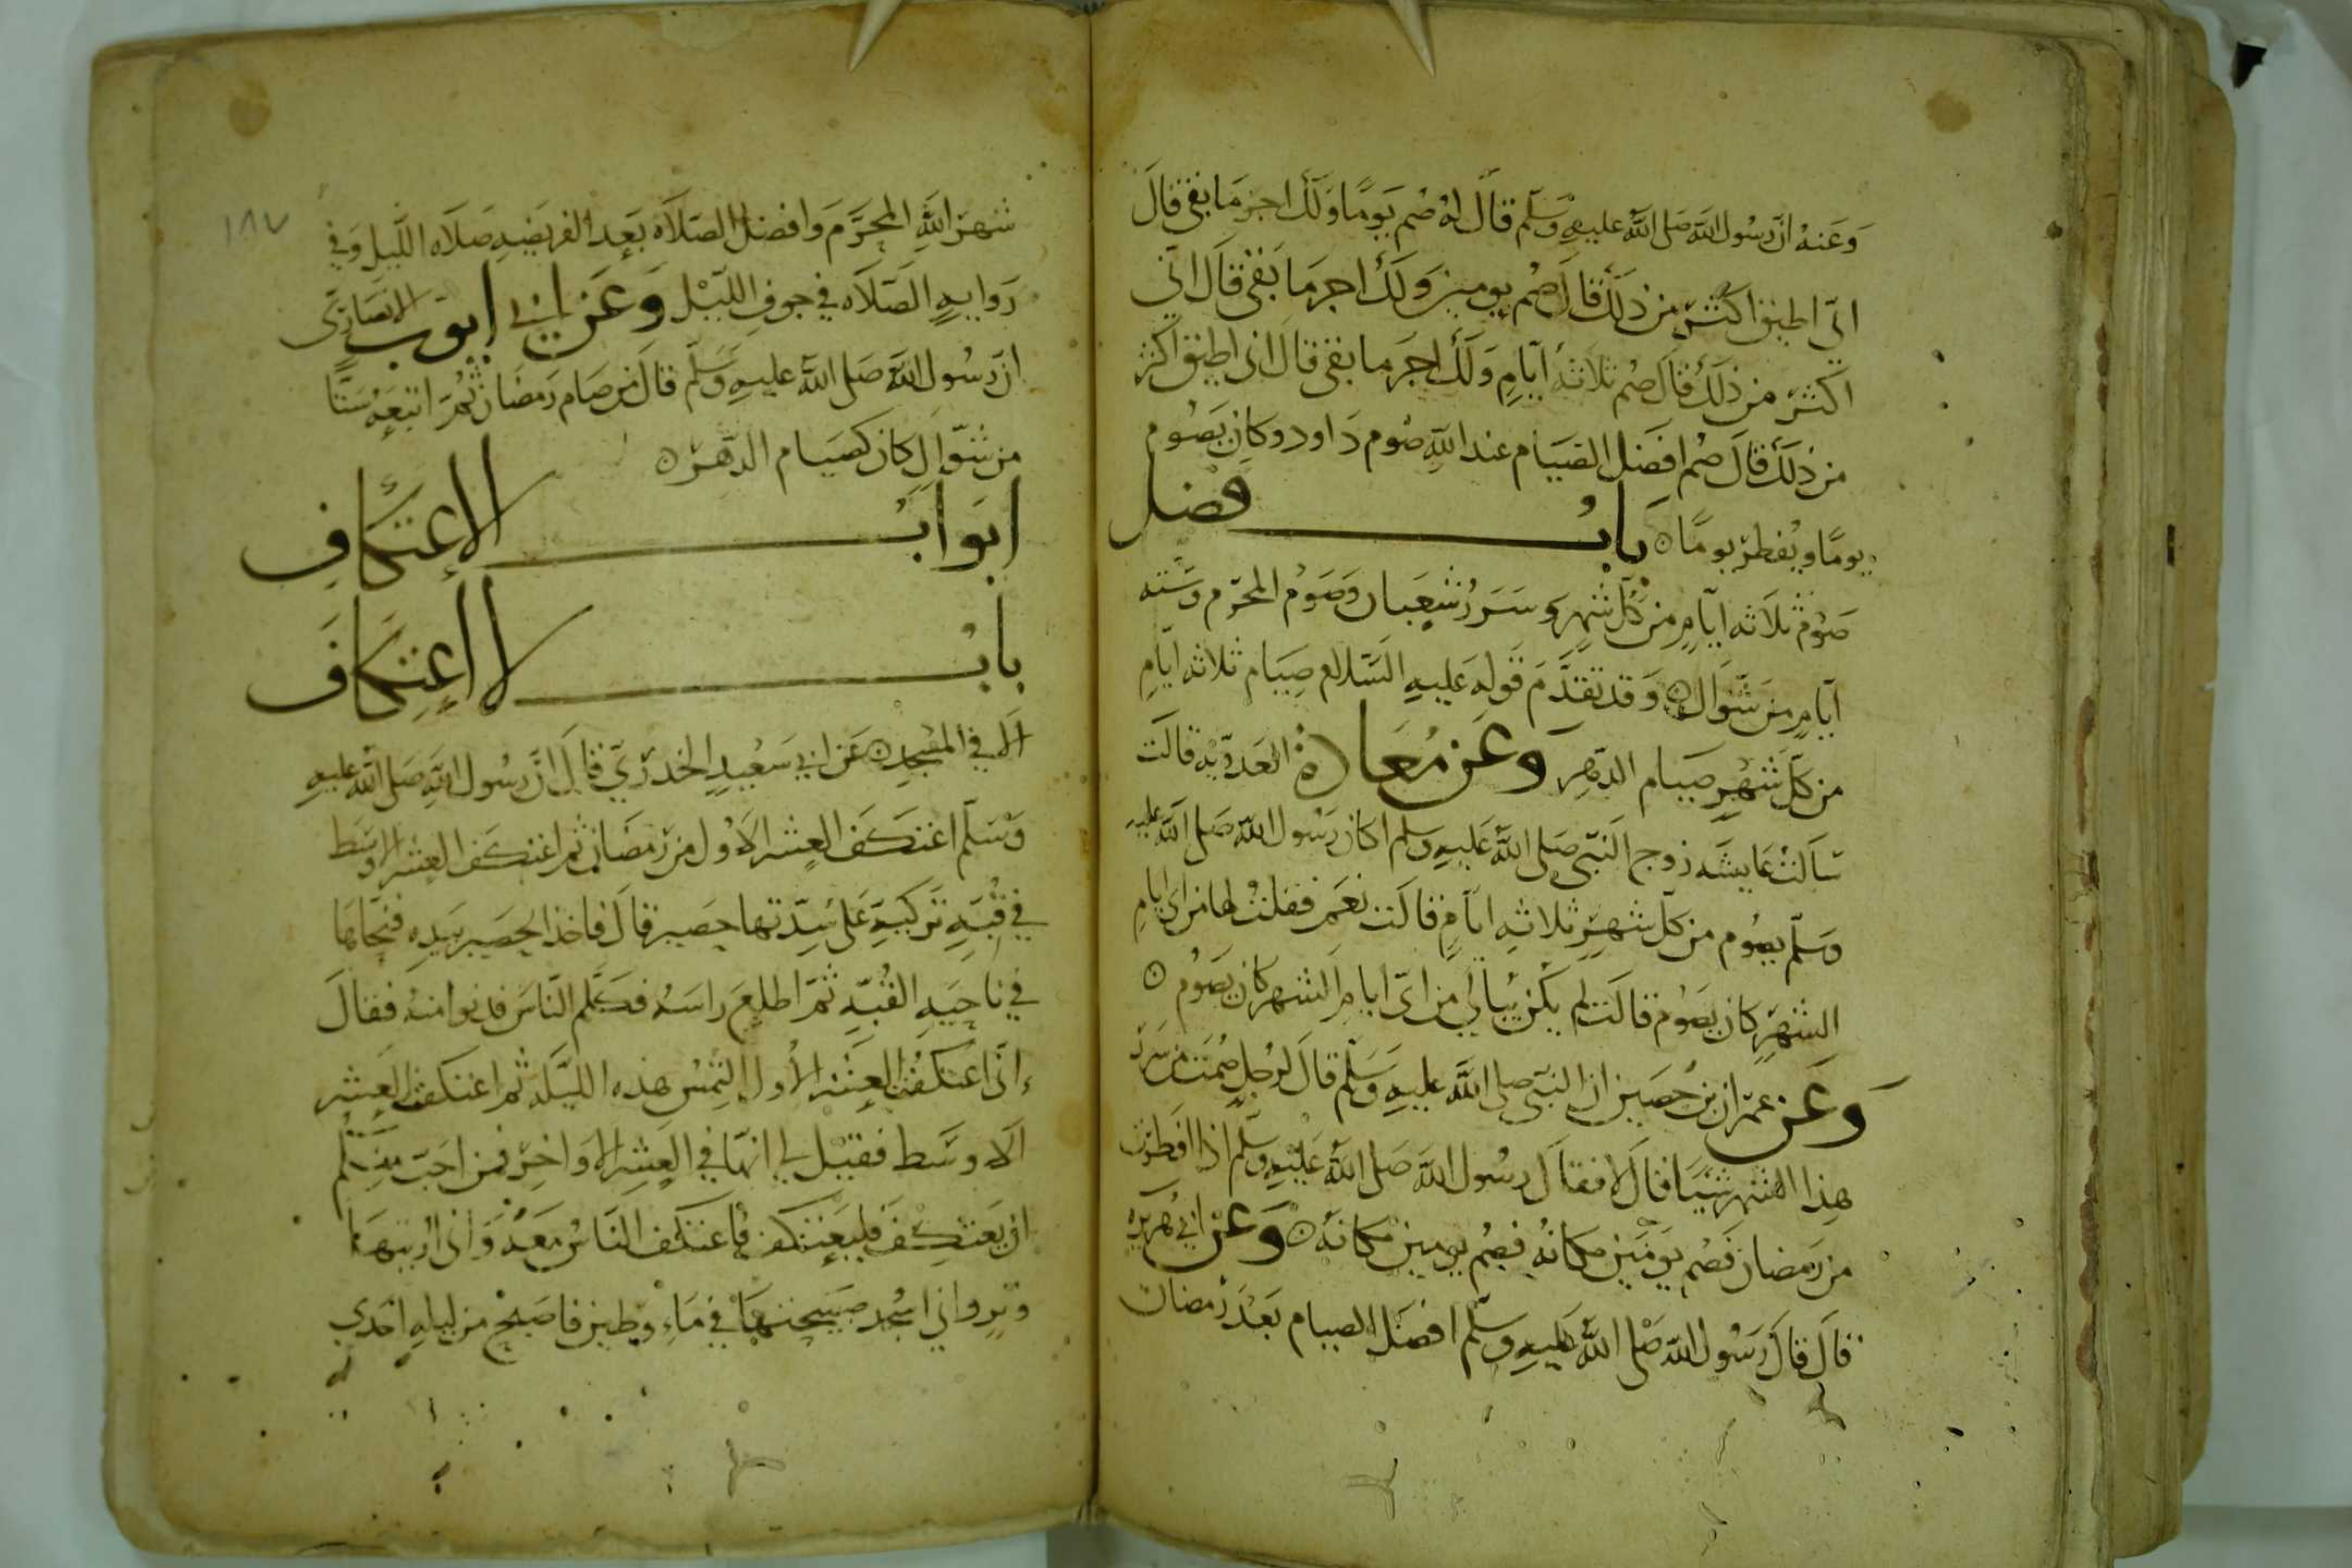 وعنه ان رسول الله صلى الله عليه وسلم قال له صم يوما ولك اجر ما بقى قال
انى اطيق اكثر من ذلك قال صم يومين ولك اجر ما بقى قال انى
اكثر من ذلك قال صم ثلاثة ايام ولك اجر ما بقى قال انى اطيق اكثر
من ذلك قال صم افضل الصيام عند الله صوم داود وكان يصوم
يوما ويفطر يوما ۞ باب فضل
صوم ثلاثه ايام من كل شهر وسرر شعبان وصوم المحرم وسته
ايام من شوال ۞ وقد تقدم قوله عليه السلام صيام ثلاثه ايام
من كل شهر صيام الدهر وعن معاذة العدويه قالت
سالت عايشه زوج النبى صلى الله عليه وسلم اكان رسول الله صلى الله عليه
وسلم يصوم من كل شهر ثلاثه ايام قالت نعم فقلت لها من اى ايام
الشهر كان يصوم قالت لم يكن يبالي من اى ايام الشهر كان يصوم ۞
وعن عمران بن حصين ان النبى صلى الله عليه وسلم قال لرجل صمت من سرر
هذا الشهر شيئا قال لا فقال رسول الله صلى الله عليه وسلم اذا افطرت
من رمضان فصم يومين مكانه فصم يومين مكانه ۞ وعن ابي هريره
قال قال رسول الله صلى الله عليه وسلم افضل الصيام بعد رمضان
١٨٧
شهر الله المحرم وافضل الصلاه بعد الفريضه صلاه الليل وفي
روايه الصلاه في جوف الليل وعن ابي ايوب الانصارى
ان رسول الله صلى الله عليه وسلم قال من صام رمضان ثم اتبعه ستا
من شوال كان كصيام الدهر ۞
ابواب الاعتكاف
باب لا اعتكاف
الا في المسجد ۞ عن ابي سعيد الخدري قال ان رسول الله صلى الله عليه
وسلم اعتكف العشر الاول من رمضان ثم اعتكف العشر الاوسط
في قبه تركية على سدتها حصير قال فاخذ الحصير بيده فنحاها
في ناحيه القبه ثم اطلع راسه فكلم الناس فدنوا منه فقال
إنى اعتكفت العشر الاول التمس هذه الليله ثم اعتكفت العشر
الاوسط فقيل لي انها في العشر الاواخر فمن احب منكم
ان يعتكف فليعتكف فاعتكف الناس معه وانى اريتها
وتر واني اسجد صبيحتها في ماء وطين فاصبح من ليله احدي